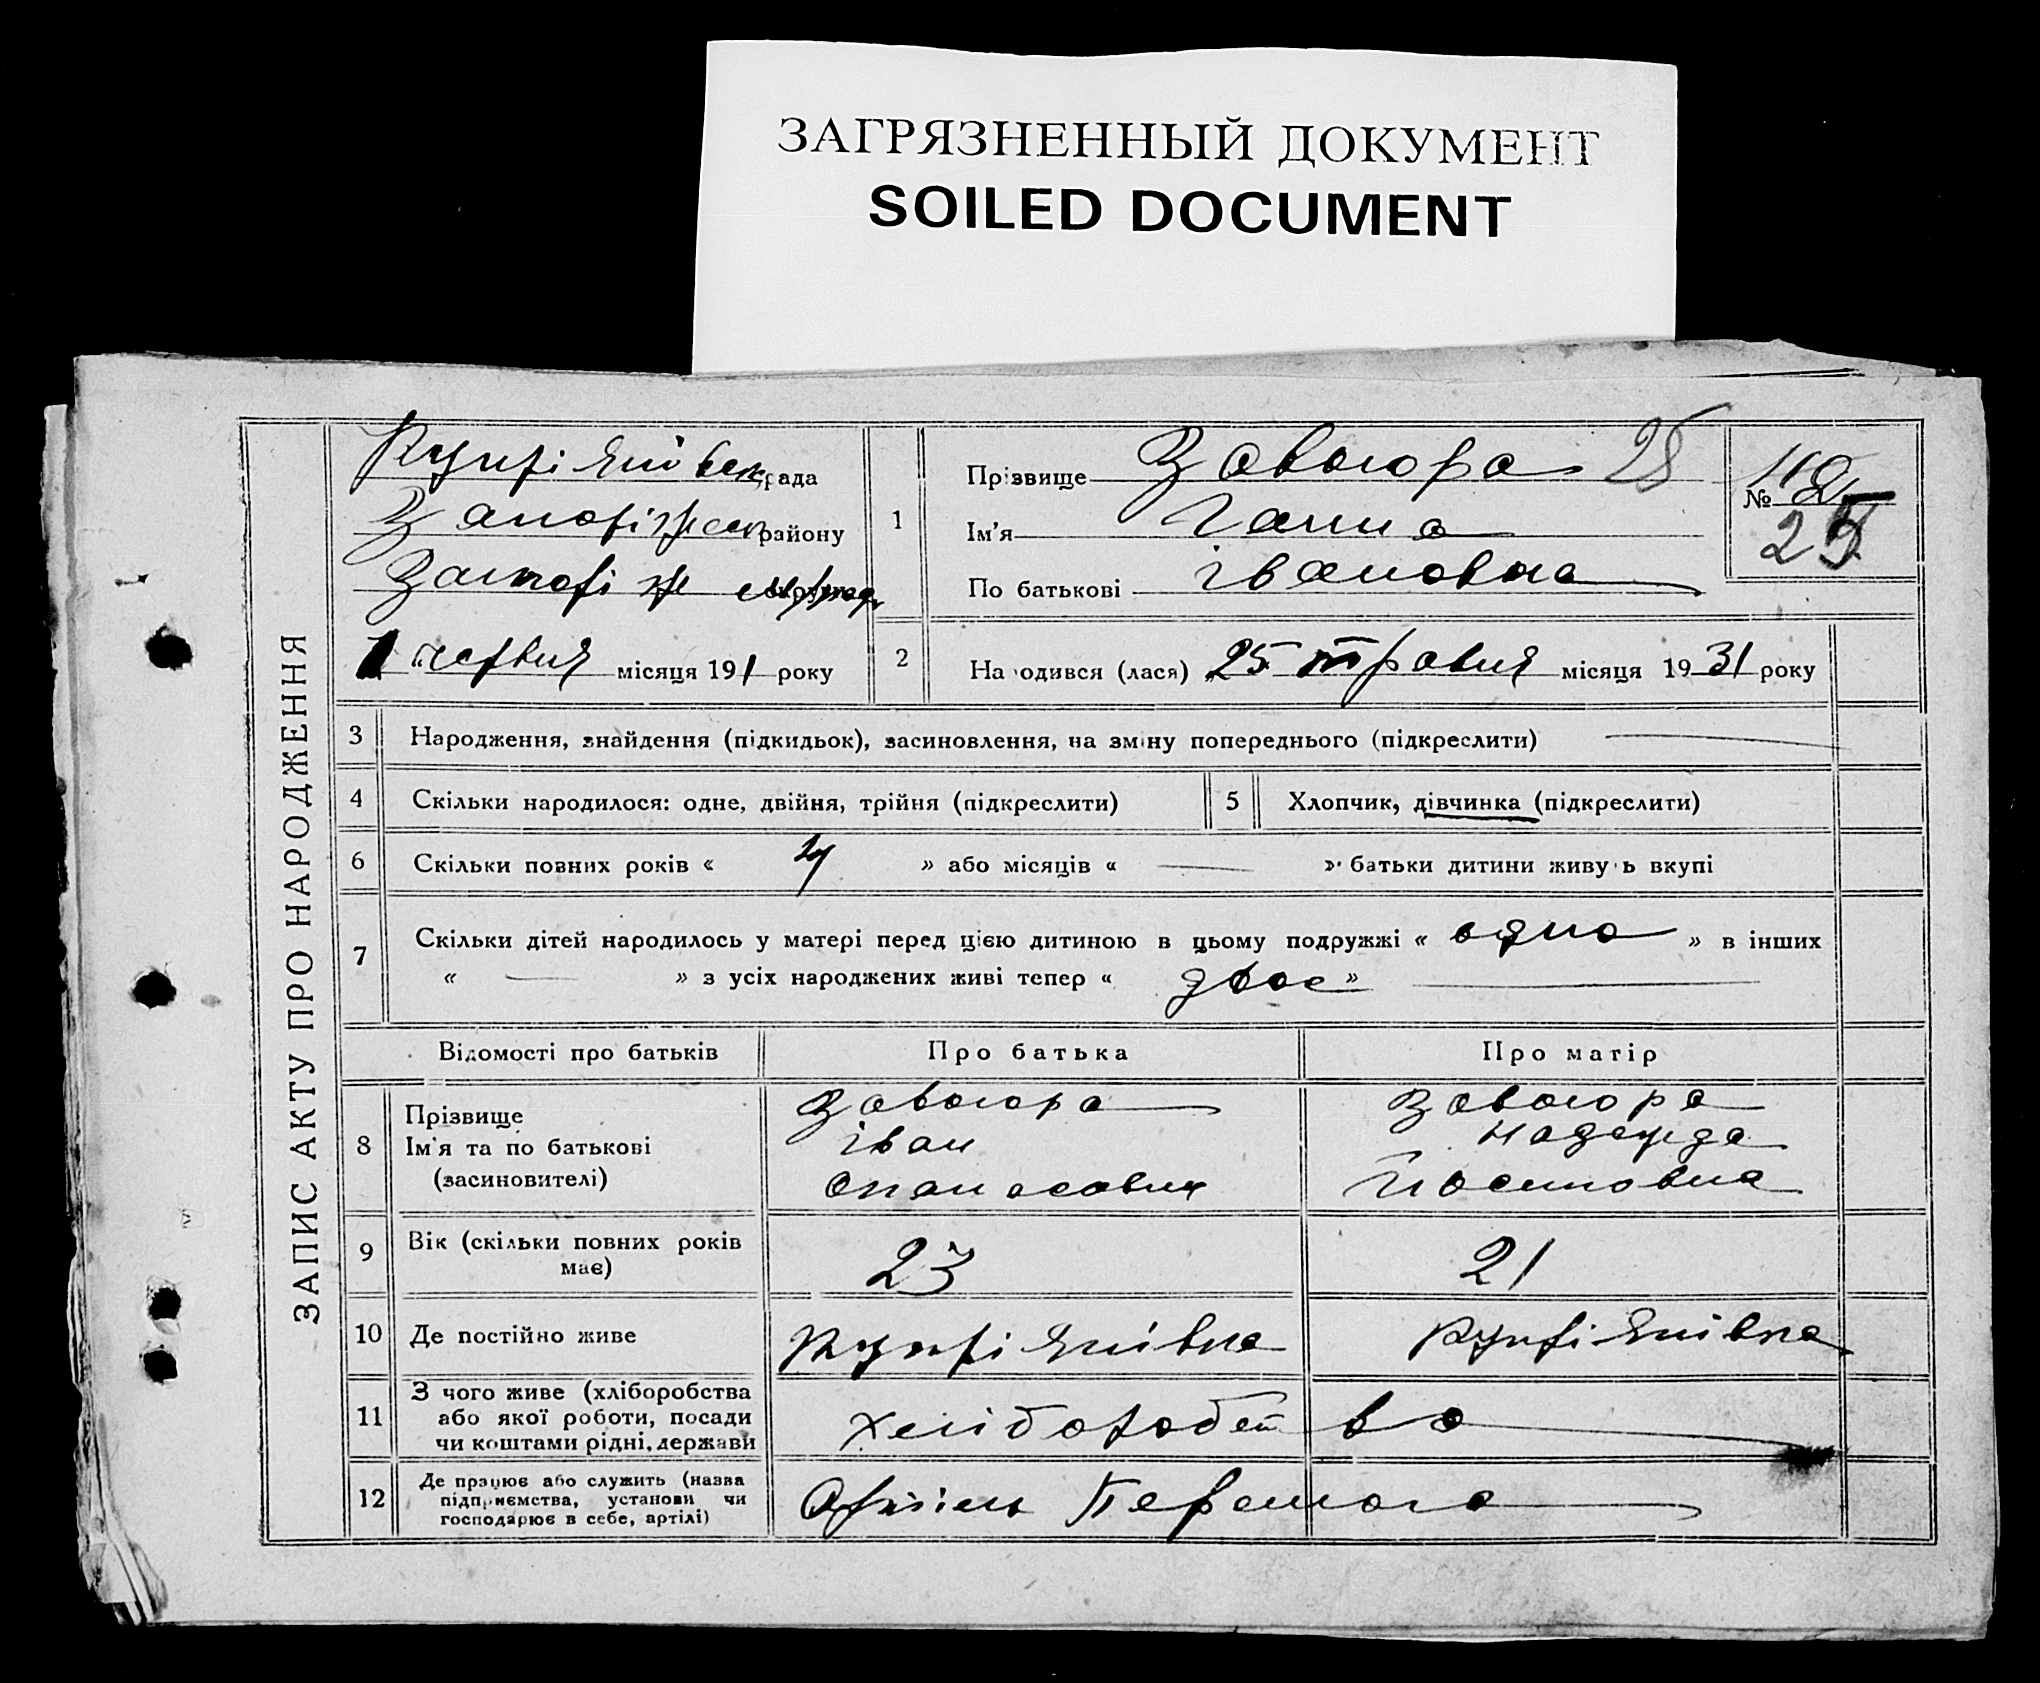 ЗАГРЯЗНЕННЫЙ ДОКУМЕНТ
SOILED DOCUMENT
ЗАПИС АКТУ ПРО НАРОДЖЕННЯ
Купріянівськ рада
Запоріжськ району
Запоріж
1 червня місяця 191 року
1
Прізвище Завгора 28
Ім'я Ганна
По батькові Івановна
№
25
2
Народився (лася) 25 травня місяця 1931 року
3 Народження, знайдення (підкидьок), засиновлення, на зміну попереднього (підкреслити)
4 Скільки народилося: одне, двійня, трійня (підкреслити)
5 Хлопчик, дівчинка (підкреслити)
6 Скільки повних років « 4 » або місяців « — » батьки дитини живуть вкупі
7 Скільки дітей народилось у матері перед цією дитиною в цьому подружжі « одна » в інших
« — » з усіх народжених живі тепер « двое »
Відомості про батьків Про батька Про матір
8
Прізвище
Ім'я та по батькові
(засиновителі)
Завгора
Іван
Опанасович
Завгора
Надежда
Йосиповна
9 Вік (скільки повних років
має)
23 21
10 Де постійно живе Купріянівка Купріянівка
11 З чого живе (хліборобства
або якої роботи, посади
чи коштами рідні, держави
хліборобство
12 Де працює або служить (назва
підприємства, установи чи
господарює в себе, артілі)
Артіль Перемога